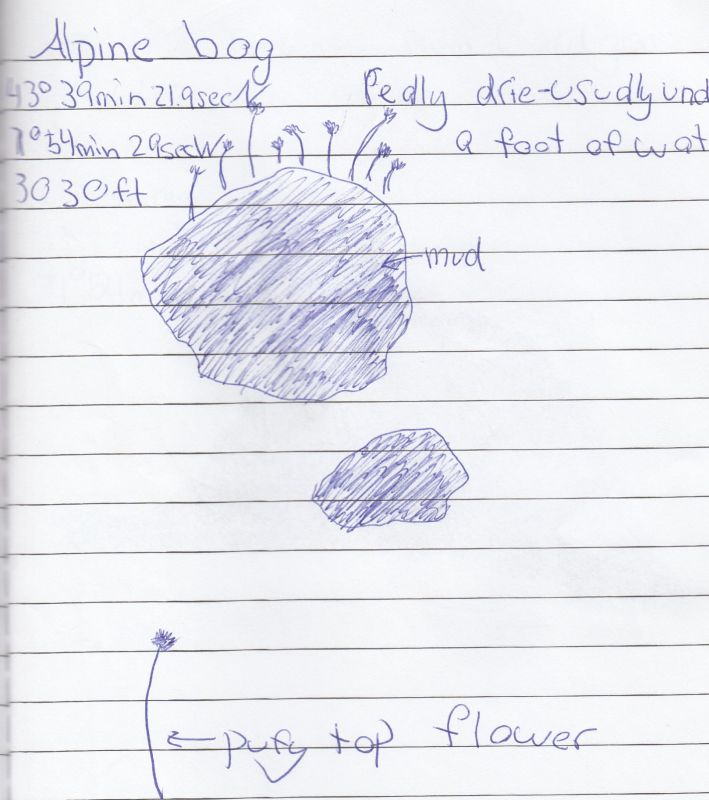 Alpine bog
43° 39min 21.9secN
1°54min 29secW
3030ft
Really drie-usually und
a foot of wat
mud
pufy top flower